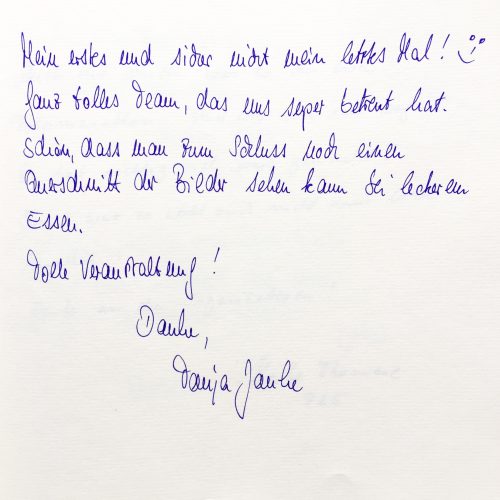 Mein erstes und sicher nicht mein letztes Mal! :)
Ganz tolles Team, das uns super betreut hat.
Schön, dass man zum Schluss noch einen
Querschnitt der Bilder sehen kann bei leckerem
Essen.
Tolle Veranstaltung!
Danke,
Tanja Janke